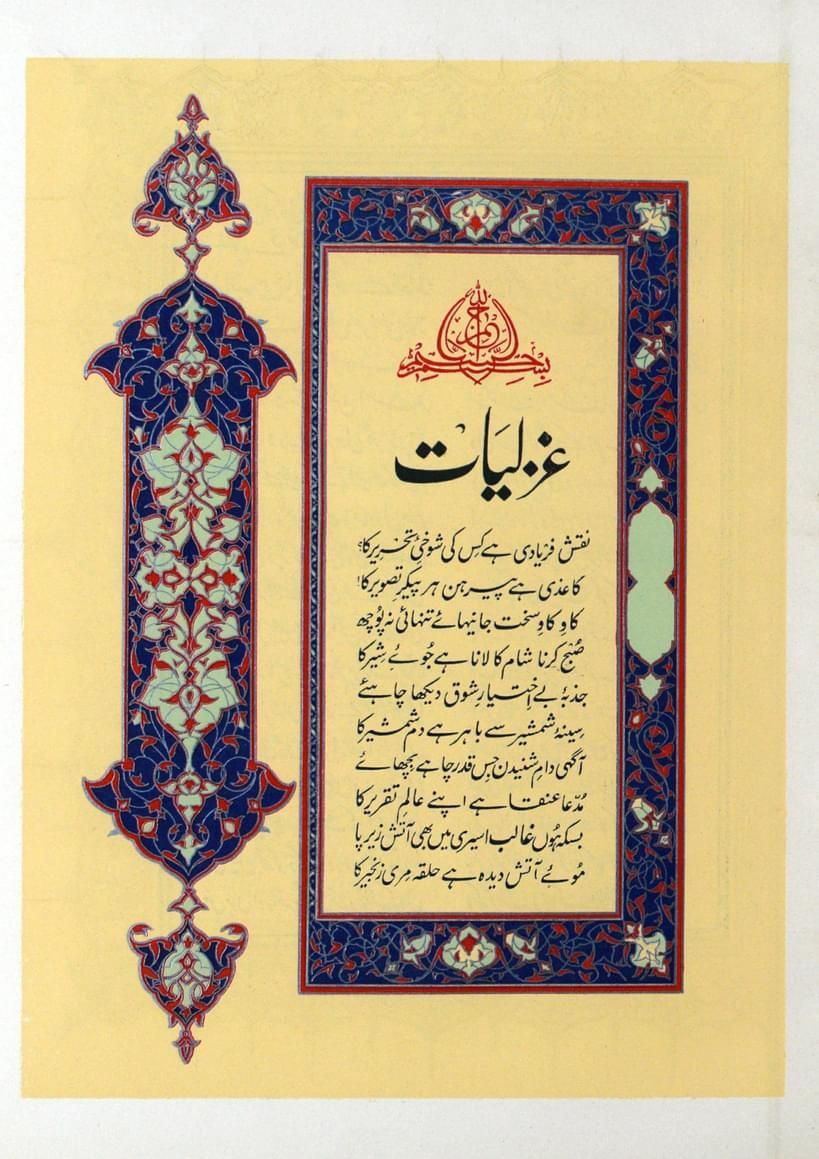 بسم الله الرحمن الرحیم
غزلیات
نقش فریادی ہے کِس کی شوخیٔ تحریر کا؟
کاغذی ہے پیرہن ہر پیکرِ تصویر کا!
کاوِ کاوِ سخت جانیہائے تنہائی نہ پُوچھ
صُبح کرنا شام کا لانا ہے جُوئے شِیر کا
جذبۂ بے اِختیارِ شوق دیکھا چاہئے
سِینۂ شمشیر سے باہر ہے دم شمشیر کا
آگہی دامِ شنیدن جِس قدر چاہے بچھائے
مُدّعا عنقا ہے اپنے عالمِ تقریر کا
بسکہ ہُوں غالب اسیری میں بھی آتش زیرِ پا
مُوئے آتش دیدہ ہے حلقہ مِری زنجیر کا